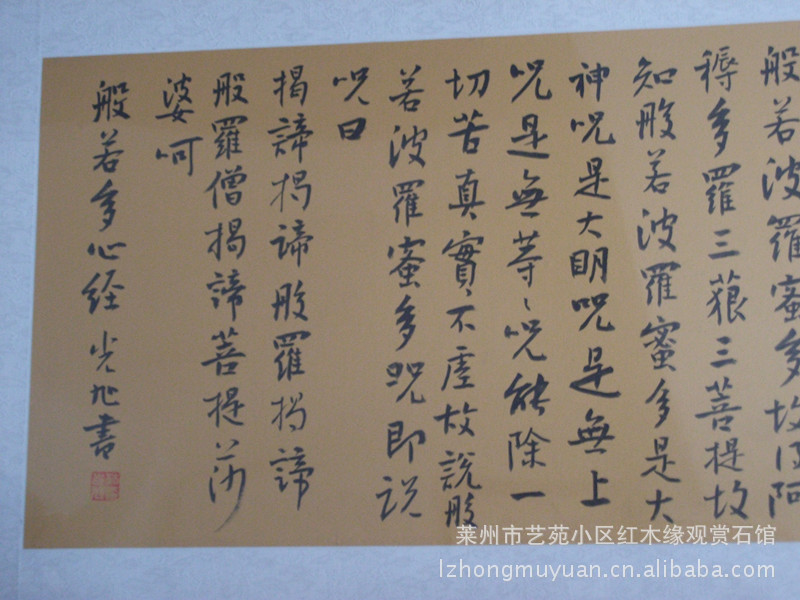 般若波羅蜜多故得阿
耨多羅三藐三菩提故
知般若波羅蜜多是大
神呪是大明呪是無上
呪是無等々呪能除一
切苦真實不虛故說般
若波羅蜜多呪即说
呪曰
揭諦揭諦般羅揭諦
般羅僧揭諦菩提莎
婆呵
般若多心经 光旭書
莱州市艺苑小区红木缘观赏石馆
lzhongmuyuan.cn.alibaba.com